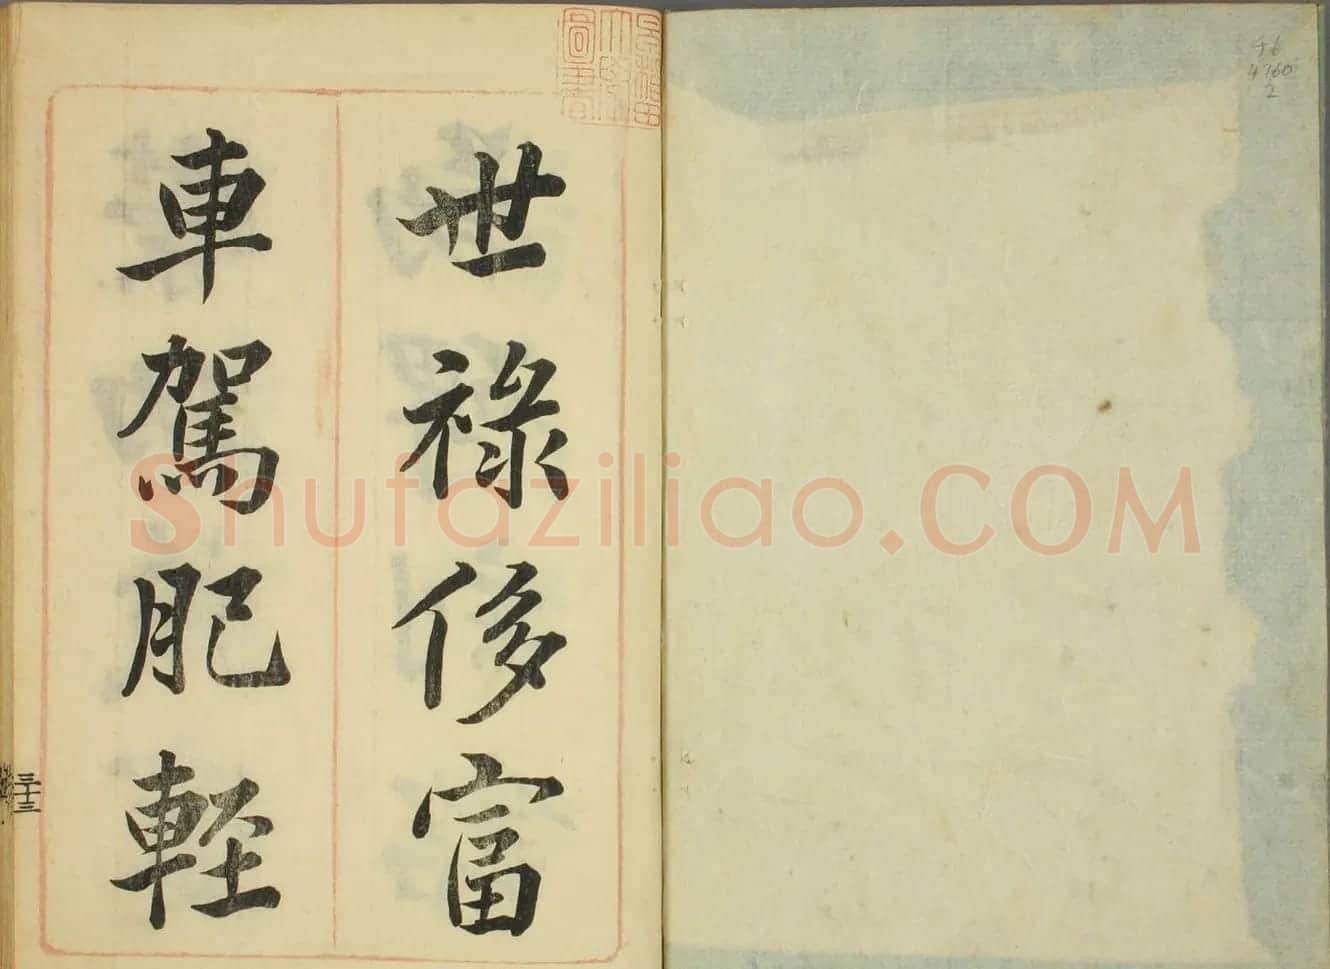 世祿侈富
車駕肥輕
三十三
Shufaziliao.COM
4760
2